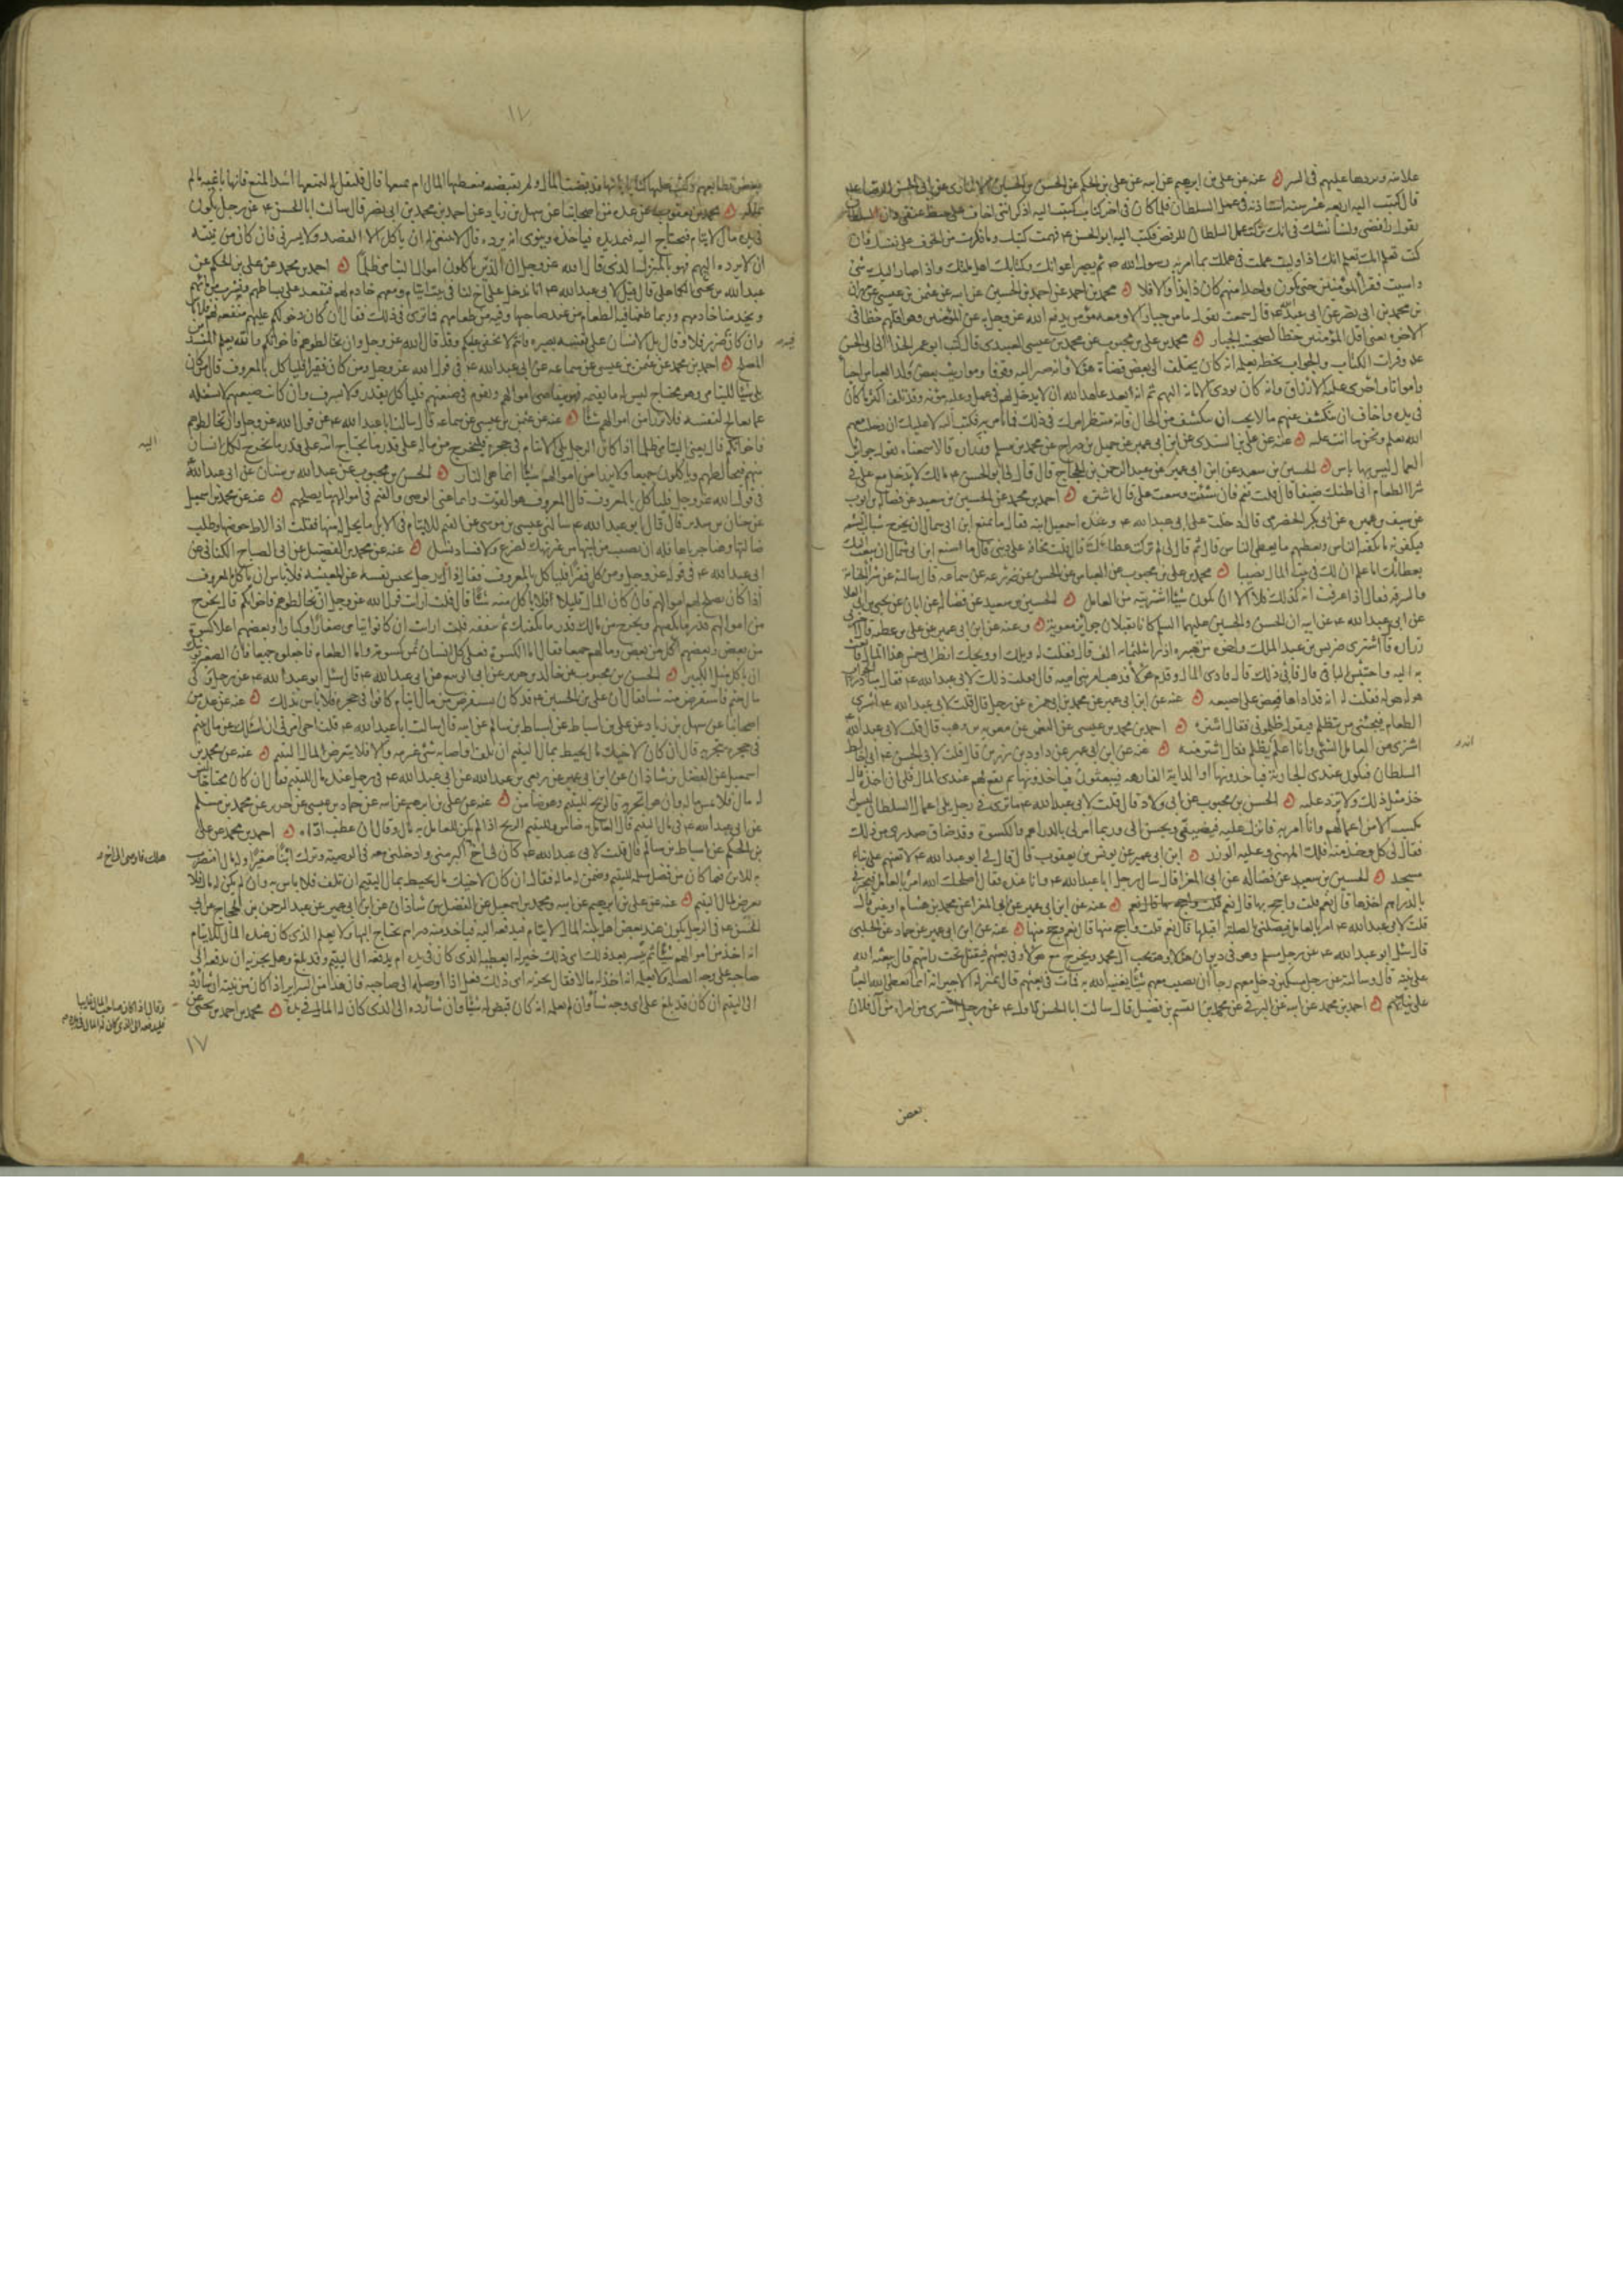 علانية ويردها عليهم في السر عنه عن علي بن ابرهيم عن ابيه عن علي بن الحكم عن الحسن بن الحسين الانباري عن ابي الحسن الرضا عليه
قال كتبت اليه اربعة عشر سنة استاذنه في عمل السلطان فلما كان في اخر كتاب كتبته اليه اذكر انني اخاف على خبط عنقي وان السلطان
يقول رافضي ولسنا نشك في انك تركت عمل السلطان للرفض فكتب اليه ابو الحسن ع فهمت كتبك وما ذكرت من الخوف على نفسك فان
كنت تعلم انك اذا وليت عملت في عملك بما امر به رسول الله ص ثم يصير اعوانك وكتابك اهل ملتك واذا صار اليك شئ
واسيت فقراء المؤمنين حتى تكون واحدا منهم كان ذا بذا والا فلا محمد بن احمد عن احمد بن الحسين عن ابيه عن عثمن بن عيسى عن مهران
بن محمد بن ابي نصر عن ابي عبدالله قال سمعته يقول ما من جبار الا ومعه مؤمن يدفع الله عز وجل به عن المؤمنين وهو اقلهم حظا في
الاخرة يعني اقل المؤمنين حظا لصحبة الجبار محمد بن علي بن محبوب عن محمد بن عيسى العبيدي قال كتب ابو عمر الحذا الى ابي الحسن
ع وقرات الكتاب والجواب بخطه يعلمه انه كان يختلف الى بعض قضاة هؤلاء وانه صير اليه وقوفا ومواريث بعض ولد العباس احيا
وامواتا واجرى عليه الارزاق وانه كان يؤدي الامانة اليهم ثم انه بعد عاهد الله ان لا يدخل لهم في عمل وعليه مؤنة وقد تلف اكثر ما كان
في يده واخاف ان ينكشف عنهم ما لا يحب ان ينكشف من الحال فانه منتظر امرك في ذلك فما تامر به فكتب اليه لا عليك ان دخلت معهم
الله يعلم ونحن ما انت عليه عنه عن علي بن السندي عن ابن ابي عمير عن جميل بن دراج عن محمد بن مسلم وزرارة قالا سمعناه يقول جوائز
العمال ليس بها باس الحسين بن سعيد عن ابن ابي عمير عن عبد الرحمن بن الحجاج قال قال لي ابو الحسن ع مالك لا تدخل مع علي في
شرا الطعام اني اظنك ضيقا قال قلت نعم فان شئت وسعت علي قال اشتره احمد بن محمد عن الحسين بن سعيد عن فضالة بن ايوب
عن سيف بن عميرة عن ابي بكر الحضرمي قال دخلت على ابي عبدالله ع وعنده اسمعيل ابنه فقال ما يمنع ابن ابي سمال ان يخرج شباب الشيعة
فيكفونه ما يكفيه الناس ويعطيهم ما يعطي الناس قال ثم قال لي لم تركت عطاءك قال قلت مخافة على ديني قال ما منع ابن ابي سمال ان يبعث اليك
بعطائك اما علم ان لك في بيت المال نصيبا محمد بن علي بن محبوب عن العباس عن الحسن عن زرعة عن سماعة قال سالته عن شرا الخيانة
والسرقة فقال اذا عرفت انه كذلك فلا الا ان يكون شيئا اشتريته من العامل الحسين بن سعيد عن فضالة عن ابان عن يحيى بن ابي العلا
عن ابي عبدالله ع عن ابيه ان الحسن والحسين عليهما السلم كانا يقبلان جوائز معوية وعنه عن ابن ابي عمير عن علي بن عطية قال اخبرني
زرارة قال اشترى ضريس بن عبد الملك واخوه من هبيرة ارزا بثلثمائة الف قال فقلت له ويلك او ويحك انظر الى خمس هذا المال فابعث
به اليه واحتبس الباقي قال فابى ذلك قال فادى المال وقدم هؤلاء فذهب امر بني امية قال فقلت ذلك لابي عبدالله ع فقال مبادرا للجواب
هو له هو له فقلت له انه قد اداها فعض على اصبعه عنه عن ابن ابي عمير عن محمد بن ابي حمزة عن رجل قال قلت لابي عبدالله ع اشتري
الطعام فيجئني من يتظلم فيقول ظلموني فقال اشتره احمد بن محمد بن عيسى عن معوية بن وهب قال قلت لابي عبدالله
اشتري من العامل الشئ وانا اعلم انه يظلم فقال اشتر منه عنه عن ابن ابي عمير عن داود بن رزين قال قلت لابي الحسن ع اني اخالط
السلطان فيكون عندي الجارية فياخذونها او الدابة الفارهة فيبعثون فياخذونها ثم يقع لهم عندي المال فلي ان اخذه قال
خذ مثل ذلك ولا تزد عليه الحسن بن محبوب عن ابي ولاد قال قلت لابي عبدالله ع ما ترى في رجل يلي اعمال السلطان ليس له
مكسب الا من اعمالهم وانا امر به فانزل عليه فيضيفني ويحسن الي وربما امر لي بالدراهم والكسوة وقد ضاق صدري من ذلك
فقال لي كل وخذ منه فلك المهنى وعليه الوزر ابن ابي عمير عن يونس بن يعقوب قال قال لي ابو عبدالله ع لا تعنهم على بناء
مسجد الحسين بن سعيد عن فضالة عن ابي المغرا قال سال رجل ابا عبدالله ع وانا عنده فقال اصلحك الله امر بالعامل فيجيزني
بالدراهم اخذها قال نعم قلت واحج بها قال نعم عنه عن ابن ابي عمير عن ابي المغرا عن محمد بن هشام او غيره قال
قلت لابي عبدالله ع امر بالعامل فيصلني بالصلة اقبلها قال نعم قلت واحج منها قال نعم وحج منها عنه عن ابن ابي عمير عن حماد عن الحلبي
قال سئل ابو عبدالله ع عن رجل مسلم وهو في ديوان هؤلاء وهو يحب ال محمد ويخرج مع هؤلاء وفي بعثهم فيقتل تحت رايتهم قال يبعثه الله
على نيته قال وسالته عن رجل مسكين دخل معهم رجا ان يصيب معهم شيئا يغنيه الله به فمات في بعثهم قال هو بمنزلة الاجير انه انما يعطي الله العباد
على نياتهم احمد بن محمد عن ابيه عن البرقي عن محمد بن القسم بن فضيل قال سالت ابا الحسن الاول ع عن رجل اشترى من امراة من آل فلان
بعض
١٧
بعض قطايعهم وكتب عليها كتابا بانها قد قبضت المال ولم تقبضه فيعطيها المال ام يمنعها قال فليقل له ليمنعها اشد المنع فانها باعته ما لم
تملكه محمد بن يعقوب عن عدة من اصحابنا عن سهل بن زياد عن احمد بن محمد بن ابي نصر قال سالت ابا الحسن ع عن رجل يكون
في يده مال لايتام فيحتاج اليه فيمد يده فياخذه وينوي انه يرده قال لا ينبغي له ان ياكل الا القصد ولا يسرف فان كان من نيته
ان لا يرده اليهم فهو بالمنزل الذي قال الله عز وجل ان الذين ياكلون اموال اليتامى ظلما احمد بن محمد عن علي بن الحكم عن
عبدالله بن يحيى الكاهلي قال قيل لابي عبدالله ع انا ندخل على اخ لنا في بيت ايتام ومعهم خادم لهم فنقعد على بساطهم ونشرب من مائهم
ويخدمنا خادمهم وربما طعمنا فيه الطعام من عند صاحبنا وفيه من طعامهم فما ترى في ذلك فقال ان كان دخولكم عليهم منفعة لهم فلا باس
وان كان فيه ضرر فلا وقال بل الانسان على نفسه بصيرة فانتم لا يخفى عليكم وقد قال الله عز وجل وان تخالطوهم فاخوانكم والله يعلم المفسد
المصلح احمد بن محمد عن عثمن بن عيسى عن سماعة عن ابي عبدالله ع في قول الله عز وجل ومن كان فقيرا فلياكل بالمعروف قال من كان
يلي شيئا لليتامى وهو محتاج ليس له ما يقيمه فهو يتقاضى اموالهم ويقوم في ضيعتهم فلياكل بقدر ولا يسرف وان كانت ضيعتهم لا تشغله
عما يعالج لنفسه فلا يرزأن من اموالهم شيئا عنه عن عثمن بن عيسى عن سماعة قال سالت ابا عبدالله ع عن قول الله عز وجل وان تخالطوهم
فاخوانكم قال يعني اليتامى اذا كان الرجل يلي الايتام في حجره فليخرج من ماله على قدر ما يحتاج اليه على قدر ما يخرج لكل انسان
منهم فيخالطهم وياكلون جميعا ولا يرزأ من اموالهم شيئا انما هي النار الحسن بن محبوب عن عبدالله بن سنان عن ابي عبدالله
في قول الله عز وجل فلياكل بالمعروف قال المعروف هو القوت وانما عنى الوصي والقيم في اموالهم بما يصلحهم عنه عن محمد بن اسمعيل
عن حنان بن سدير قال قال ابو عبدالله ع سالني عيسى بن موسى عن القيم للايتام في الابل ما يحل له منها فقلت اذا لاط حوضها وطلب
ضالتها وهنا جرباها فله ان يصيب من لبنها من غير نهك لضرع ولا فساد نسل عنه عن محمد بن الفضيل عن ابي الصباح الكناني عن
ابي عبدالله ع في قوله عز وجل ومن كان فقيرا فلياكل بالمعروف فقال ذاك رجل يحبس نفسه عن المعيشة فلا باس ان ياكل بالمعروف
اذا كان يصلح لهم اموالهم فان كان المال قليلا فلا ياكل منه شيئا قال قلت ارايت قول الله عز وجل ان تخالطوهم فاخوانكم قال تخرج
من اموالهم قدر ما يكفيهم وتخرج من مالك قدر ما يكفيك ثم تنفقه قلت ارايت ان كانوا يتامى صغارا وكبارا وبعضهم اعلا كسوة
من بعض وبعضهم اكل من بعض ومالهم جميعا فقال اما الكسوة فعلى كل انسان ثمن كسوته واما الطعام فاجعلوه جميعا فان الصغير يوشك
ان ياكل مثل الكبير الحسن بن محبوب عن خالد بن جرير عن ابي الربيع عن ابي عبدالله ع قال سئل ابو عبدالله ع عن رجل ولي
مال يتيم فاستقرض منه شيئا فقال ان علي بن الحسين ع قد كان يستقرض من مال ايتام كانوا في حجره فلا باس بذلك عنه عن عدة من
اصحابنا عن سهل بن زياد عن علي بن اسباط عن اسباط بن سالم عن ابيه قال سالت ابا عبدالله ع قلت اخي امرني ان اسئلك عن مال يتيم
في حجره يتجر به قال ان كان لاخيك مال يحيط بمال اليتيم ان تلف او اصابه شئ غرمه والا فلا يتعرض لمال اليتيم عنه عن محمد بن
اسمعيل عن الفضل بن شاذان عن ابن ابي عمير عن ربعي بن عبدالله عن ابي عبدالله ع في رجل عنده مال اليتيم فقال ان كان محتاجا ليس
له مال فلا يمس ماله وان هو اتجر به فالربح لليتيم وهو ضامن عنه عن علي بن ابرهيم عن ابيه عن حماد بن عيسى عن حريز عن محمد بن مسلم
عن ابي عبدالله ع في مال اليتيم قال العامل به ضامن ولليتيم الربح اذا لم يكن للعامل به مال وقال ان عطب اداه احمد بن محمد عن علي
بن الحكم عن اسباط بن سالم قال قلت لابي عبدالله ع كان لي اخ اكبر مني وادخلني معه في الوصية وترك ابنا صغيرا وله مال افيضرب
به للابن فما كان من فضل سلمه لليتيم وضمن له ماله فقال ان كان لاخيك مال يحيط بمال اليتيم ان تلف فلا باس به وان لم يكن له مال فلا
يعرض لمال اليتيم عنه عن علي بن ابرهيم عن ابيه ومحمد بن اسمعيل عن الفضل بن شاذان عن ابن ابي عمير عن عبد الرحمن بن الحجاج عن ابي
الحسن ع في الرجل يكون عند بعض اهل بيته المال لايتام فيدفعه اليه فياخذ منه دراهم يحتاج اليها ولا يعلم الذي كان عنده المال للايتام
انه اخذ من اموالهم شيئا ثم تيسر بعد ذلك اي ذلك خير له ايعطيه الذي كان في يده ام يدفعه الى اليتيم وقد بلغ وهل يجزيه ان يدفعه الى
صاحبه على وجه الصلة ولا يعلمه انه اخذ له مالا فقال يجزيه اي ذلك فعل اذا اوصله الى صاحبه فان هذا من السراير اذا كان من نيته ان شا رده
الى اليتيم ان كان قد بلغ على اي وجه شا وان لم يعلمه انه كان قبض له شيئا وان شا رده الى الذي كان له المال في يده محمد بن احمد بن يحيى عن
اليه
وقال اذا كان صاحب المال غايبا
فليدفعه الى الذي كان له المال في يده
١٧